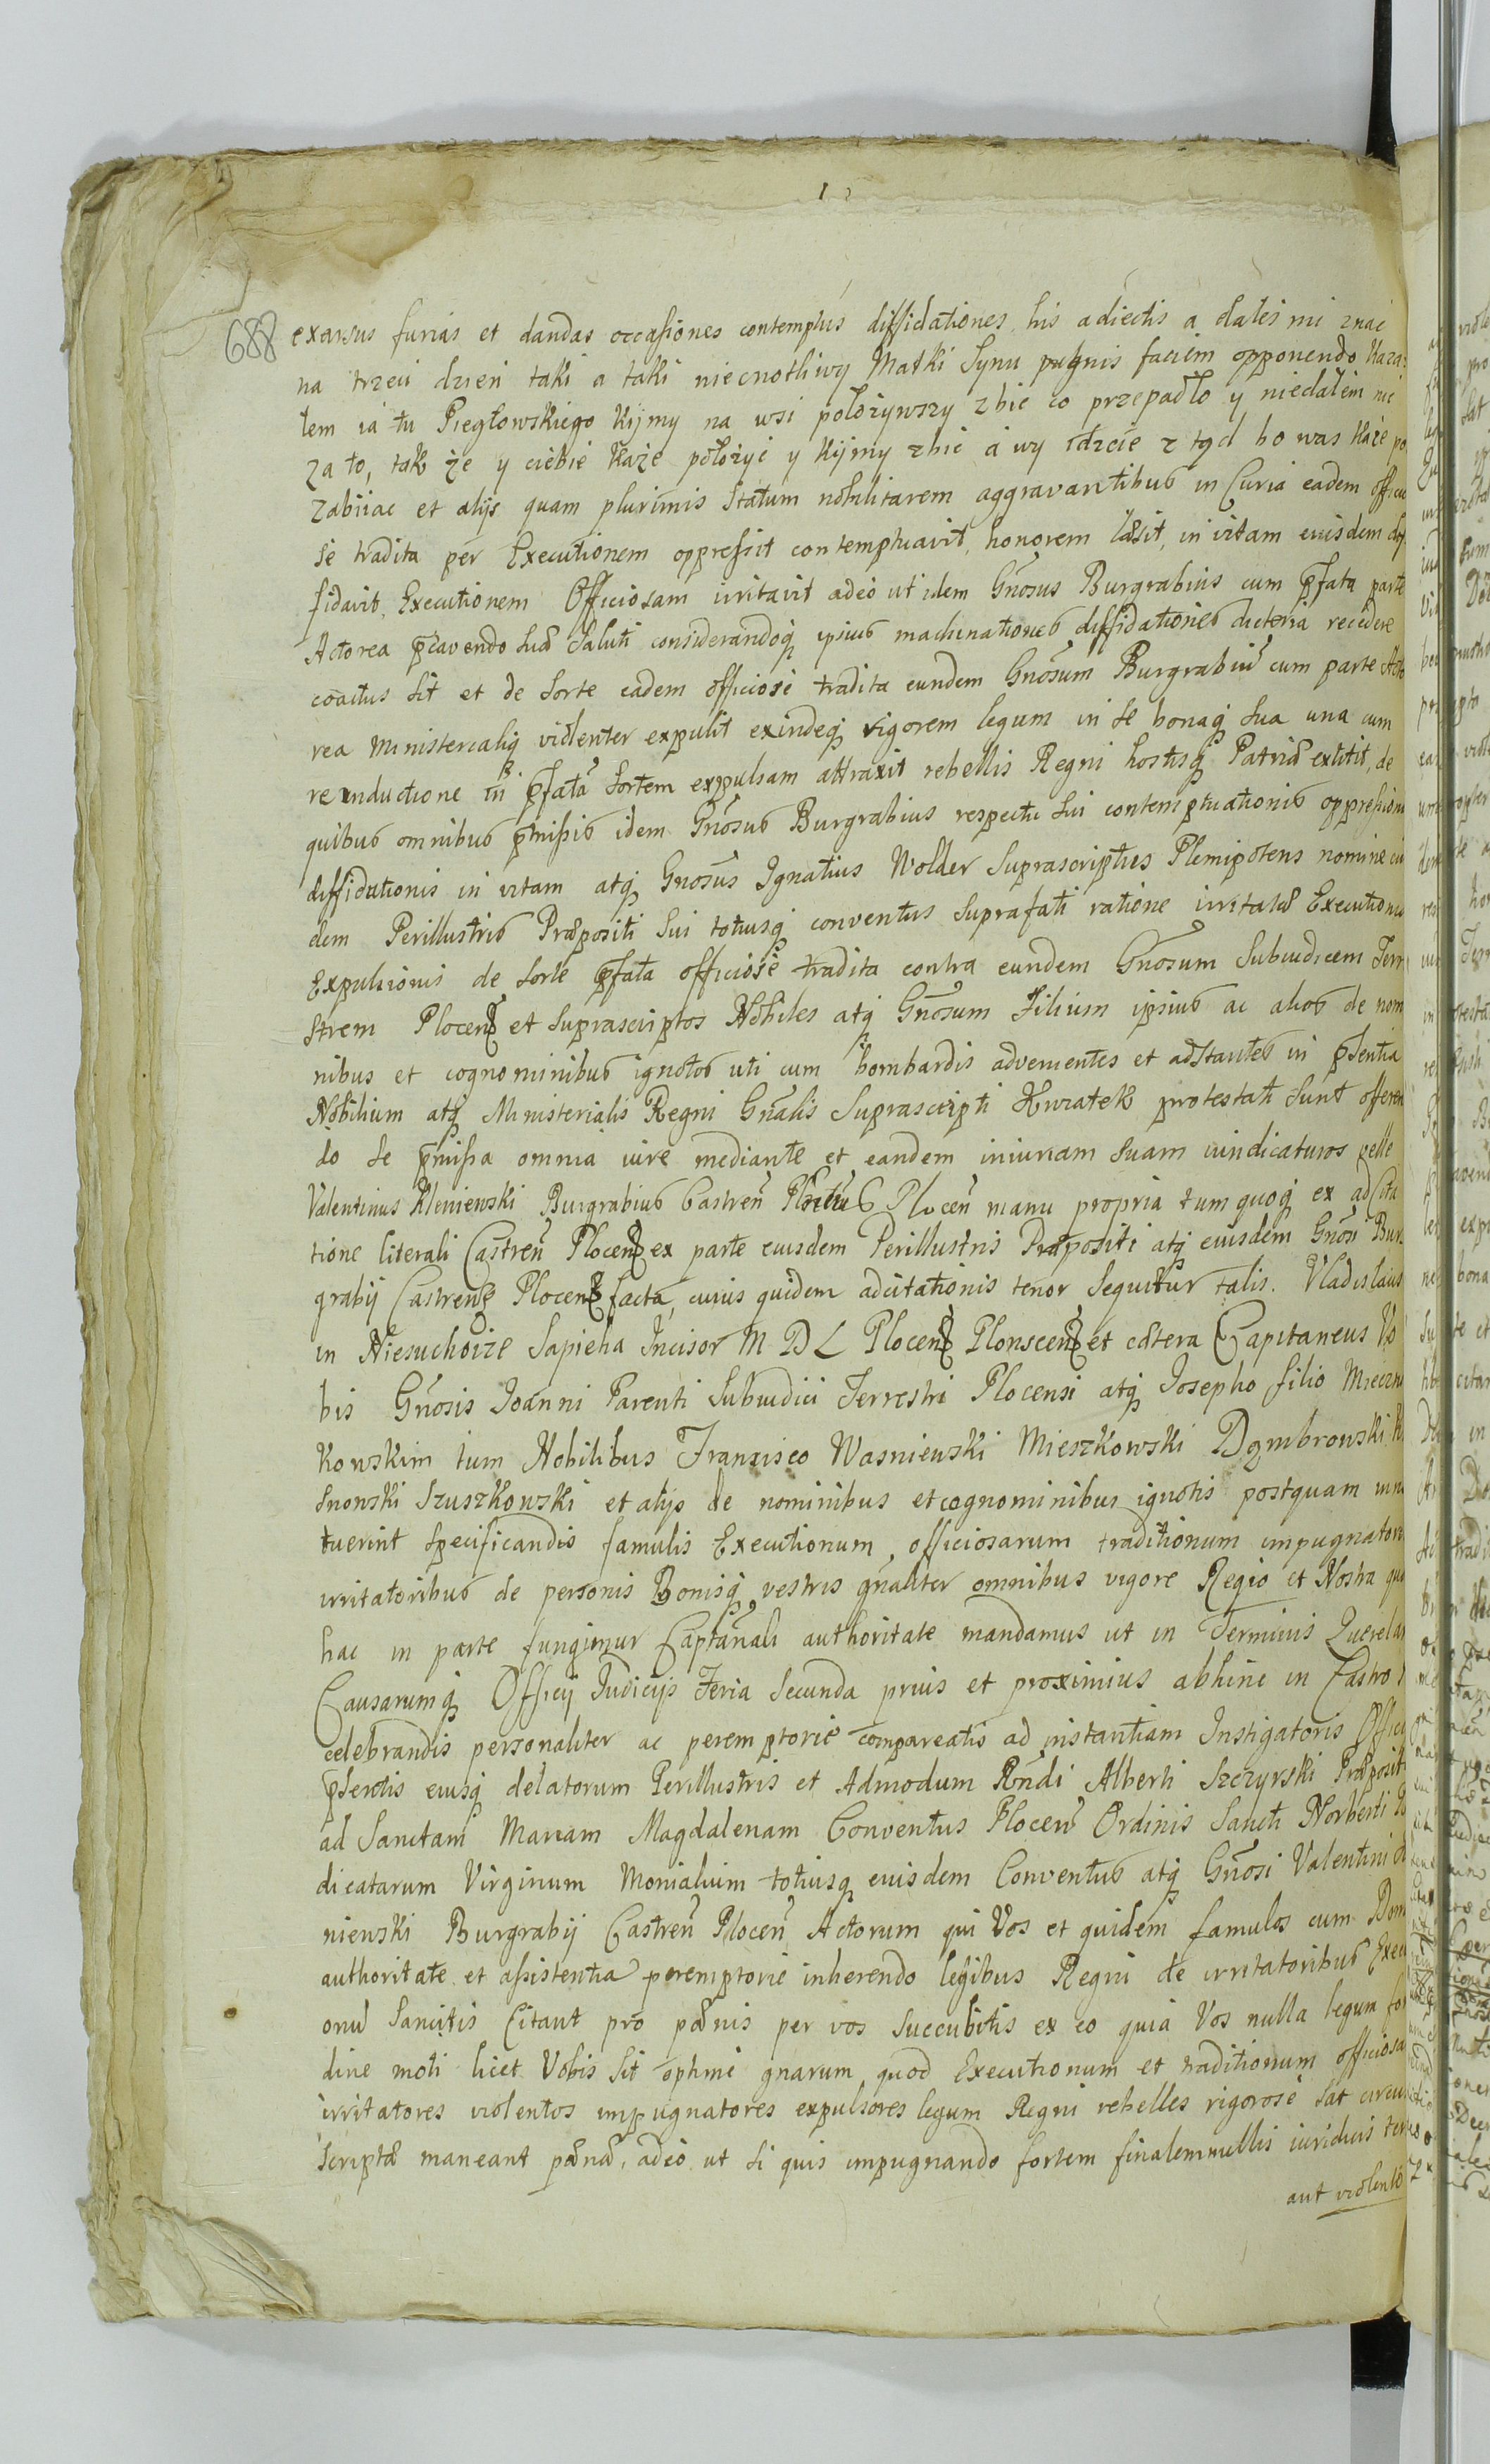 688
exarsus furias et dandas occasiones contemptus diffidationes his adiectis a dałeś mi znac
na trzeci dzien taki a taki niecnotliwy Matki Synu pugnis faciem opponendo kaza:
łem ia tu Piegłowskiego kijmy na wsi położywszy zbic co przepadło y niedałem nic
za to, tak że y ciebie każe położyć y kijmy zbic a wy idzcie z tąd bo was każe po
zabiiac et alijs quam plurimis Statum nobilitarem aggravantibus in Curia eadem officio
se tradita per Executionem oppressit contemptuavit, honorem læsit, in vitam eiusdem dif
fidavit, Executionem Officiosam irritavit adeo ut idem Gnosus Burgrabius cum pfata parte
Actorea pcavendo suæ Saluti considerandoq ipsius machinationes diffidationes dicteria recedere
coactus sit et de sorte eadem officiose tradita eundem Gnosum Burgrabiu cum parte Acto
rea Ministerialiq violenter expulit exindeq rigorem legum in se bonaq sua una cum
reinductione in pfata Sortem expulsam attraxit rebellis Regni hostisq Patriæ extitit, de
quibus omnibus pmissis idem Gnosus Burgrabius respectu sui contemptuationis oppression
diffidationis in vitam atq Gnosus Ignatius Wolder Suprascriptus Plenipotens nomine eiu
dem Perillustris Præpositi sui totiusq conventus Suprafati ratione irritatæ Executionis
Expulsionis de sorte pfata officiose tradita contra eundem Gnosum Subiudicem Terr
strem Plocens et suprascriptos Nobiles atq Gnosum Filium ipsius ac alios de nomi
nibus et cognominibus ignotos uti cum bombardis advenientes et adstantes in psentia
Nobilium atq Ministerialis Regni Gnalis Suprascripti Kwiatek protestati sunt offeren
do se pmissa omnia iure mediante et eandem iniuriam suam vindicaturos velle
Valentinus Kleniewski Burgrabius Castren Plocen manu propria tum quoq ex adcita
tione literali Castren Plocens ex parte eiusdem Perillustris Præpositi atq eiusdem Gnosi Bur
grabij Castrens Plocens facta, cuius quidem adcitationis tenor Sequitur talis. Vladislaus
in Niesuchoize Sapieha Incisor M D L Plocens Plonscens et cætera Capitaneus Vo
bis Gnosis Joanni Parenti Subiudici Terrestri Plocensi atq Josepho filio Mieczni
kowskim tum Nobilibus Francisco Wasniewski Mieszkowski Dąmbrowski
snowski Szuszkowski et alijs de nominibus et cognominibus ignotis postquam inno
tuerint Specificandis famulis Executionum officiosarum traditionum impugnatori
irritatoribus de personis Bonisq vestris gnaliter omnibus vigore Regio et Nostra qua
hac in parte fungimur Captanali authoritate mandamus ut in Terminis Querelar
Causarumq Officij Judicijs Feria Secunda prius et proximius abhinc in Castro
celebrandis personaliter ac peremptorie compareatis ad instantiam Instigatoris Officij
psentis eiusq delatorum Perillustris et Admodum Rndi Alberti Szczyrski Præposit
ad Sanctam Mariam Magdalenam Conventus Plocen Ordinis Sancti Norberti
dicatarum Virginum Monialium totiusq eiusdem Conventus atq Gnosi Valentini Kle
niewski Burgrabij Castren Plocen Actorum qui Vos et quidem famulos cum Domi
authoritate et assistentia peremptorie inherendo legibus Regni de irritatoribus Exec
onu Sancitis Citant pro pænis per vos Succubitis ex eo quia Vos nulla legum for
dine moti licet Vobis Sit optime gnarum quod Executionum et traditionum officiosa
irritatores violentos impugnatores expulsores legum Regni rebelles rigorose Sat circum
scriptæ maneant pænæ, adeo ut si quis impugnando fortem finalem nullis iuridicis ter
aut violento